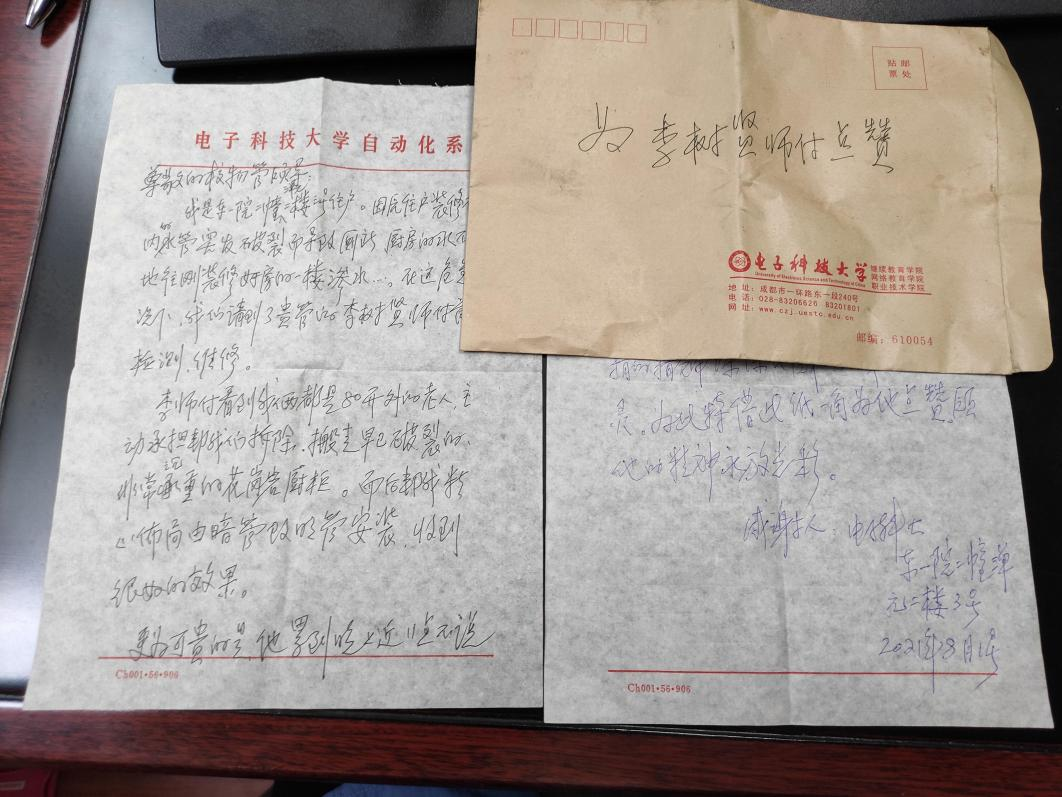 电子科技大学自动化系
尊敬的校物管领导:
我是东一院二幢二楼3号住户。因完住户装修
内水管突发破裂而导致厕所厨房的水不
地往刚装修好房的一楼渗水…。在这危急
况下,我们请到了贵管的李树贤师付前
检测、维修。
李师付看到我们两都是80开外的老人,主
动承担帮我们拆除、搬走早已破裂的、
非常沉重的花岗岩厨柜。而后帮我精
心佈局由暗管改明管安装,收到
很好的效果。
更为可贵的是,他累到晚上近11点不说
Ch001·56·906
贴邮
票处
为李树贤师付点赞
电子科技大学
University of Electronic Science and Technology of China
继续教育学院
网络教育学院
职业技术学院
地址:成都市一环路东一段240号
电话:028-83206626 83201801
网址:www.czj.uestc.edu.cn
邮编:610054
灵。为此特借此纸滴为他点赞愿
他的精神永放光彩。
感谢人:电子科大
东一院二幢单
元二楼3号
2021年8月1号
Ch001·56·906